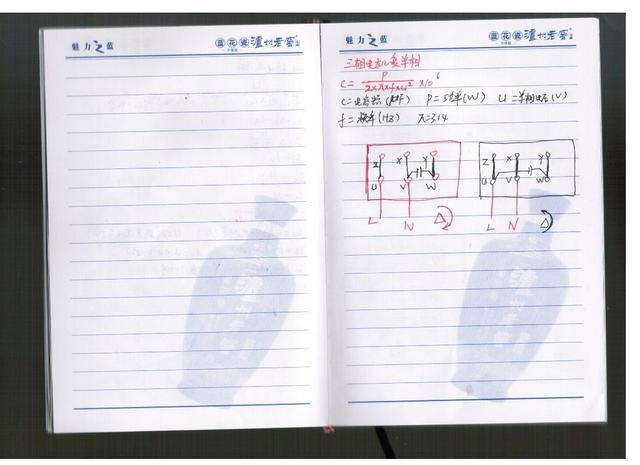 魅力之蓝
蓝花瓷 泸州老窖
魅力之蓝
蓝花瓷 泸州老窖
三相电机变单相
C= P / 2×π×f×U² ×10⁶
C=电容器(μF) P=功率(W) U=单相电压(V)
f=频率(HZ) π=3.14
Z X Y Z X Y
U V W U V W
L N △ L N △